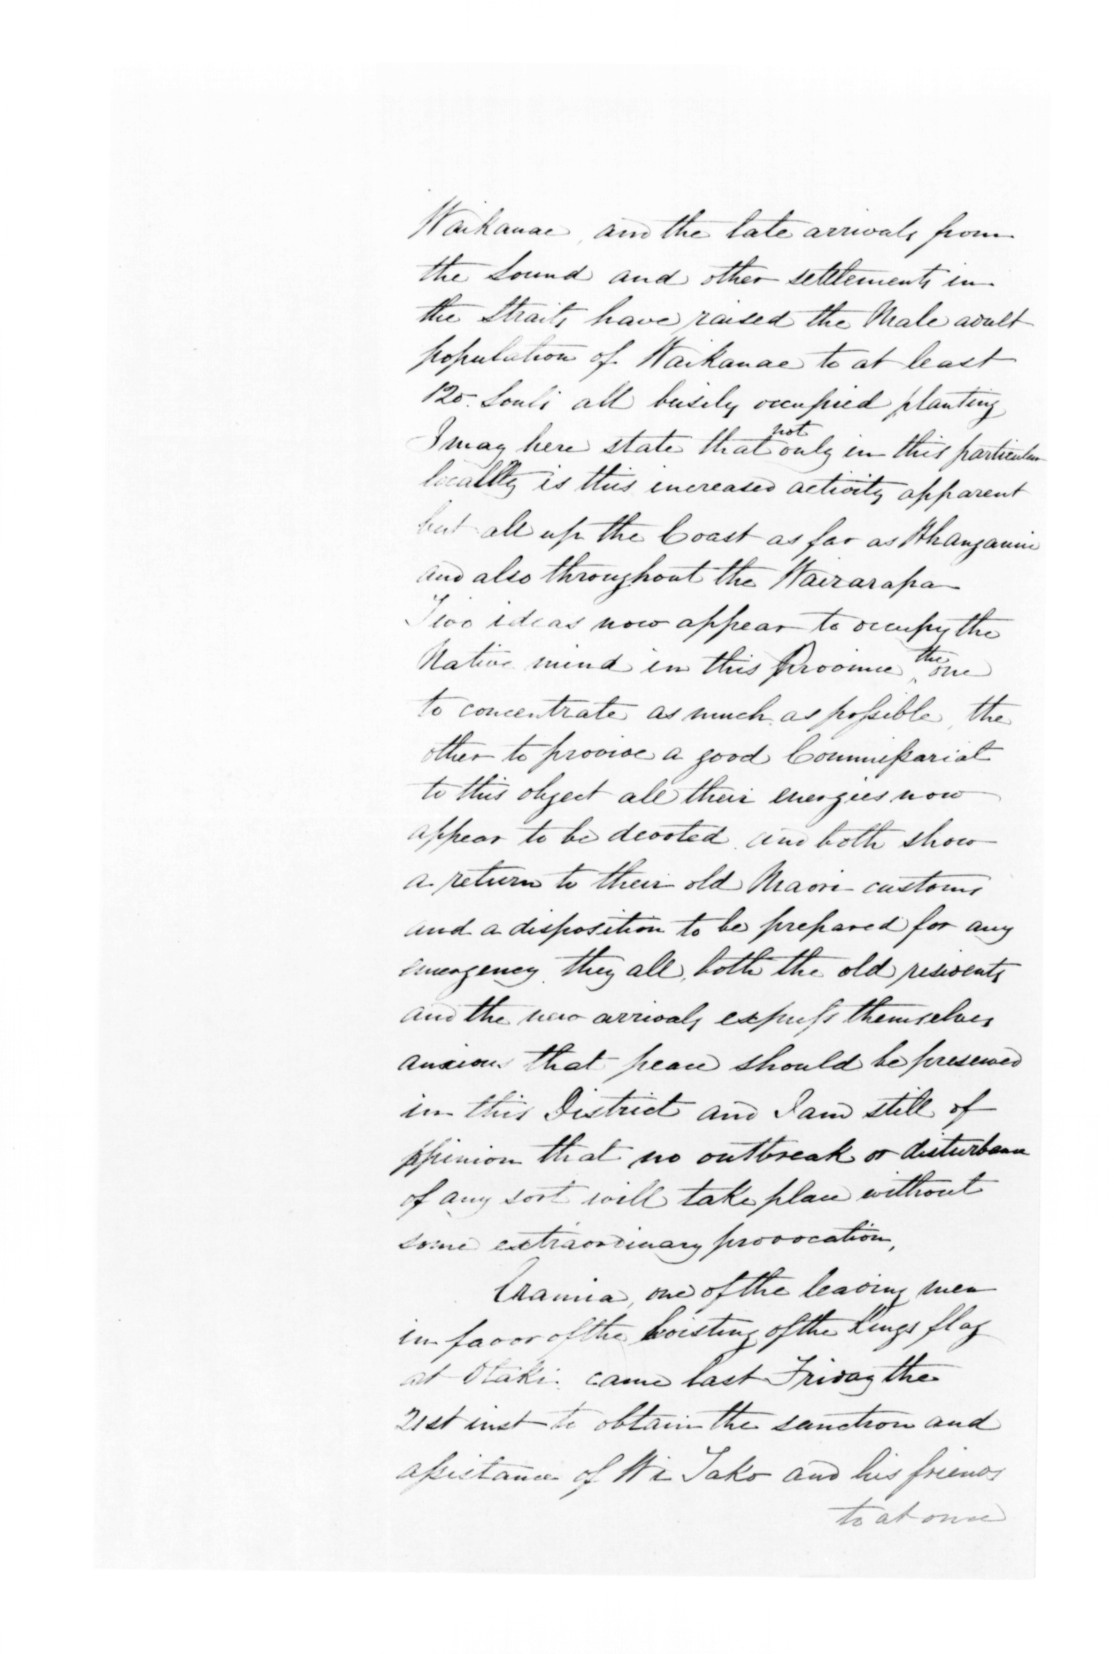 Waikanae, and the late arrivals from
the Sound and other settlements in
the Straits have raised the Male adult
population of Waikanae to at least
120. Souls all busily occupied planting
I may here state that not only in this particular
locality is this increased activity apparent
but all up the Coast as far as Whanganui
and also throughout the Wairarapa
Two ideas now appear to occupy the
Native mind in this Province, the one
to concentrate as much as possible, the
other to provide a good Commissariat
to this object all their energies now
appear to be devoted and both show
a return to their old Maori customs
and a disposition to be prepared for any
emergency. they all, both the old residents
and the new arrivals express themselves
anxious that peace should be preserved
in this District and I am still of
opinion that no outbreak or disturbance
of any sort will take place without
some extraordinary provocation,
one of the leading men
in favor of the hoisting of the Kings flag
at Otaki. came last Friday the
21st inst to obtain the sanction and
assistance of Wi Tako and his friends
to at once